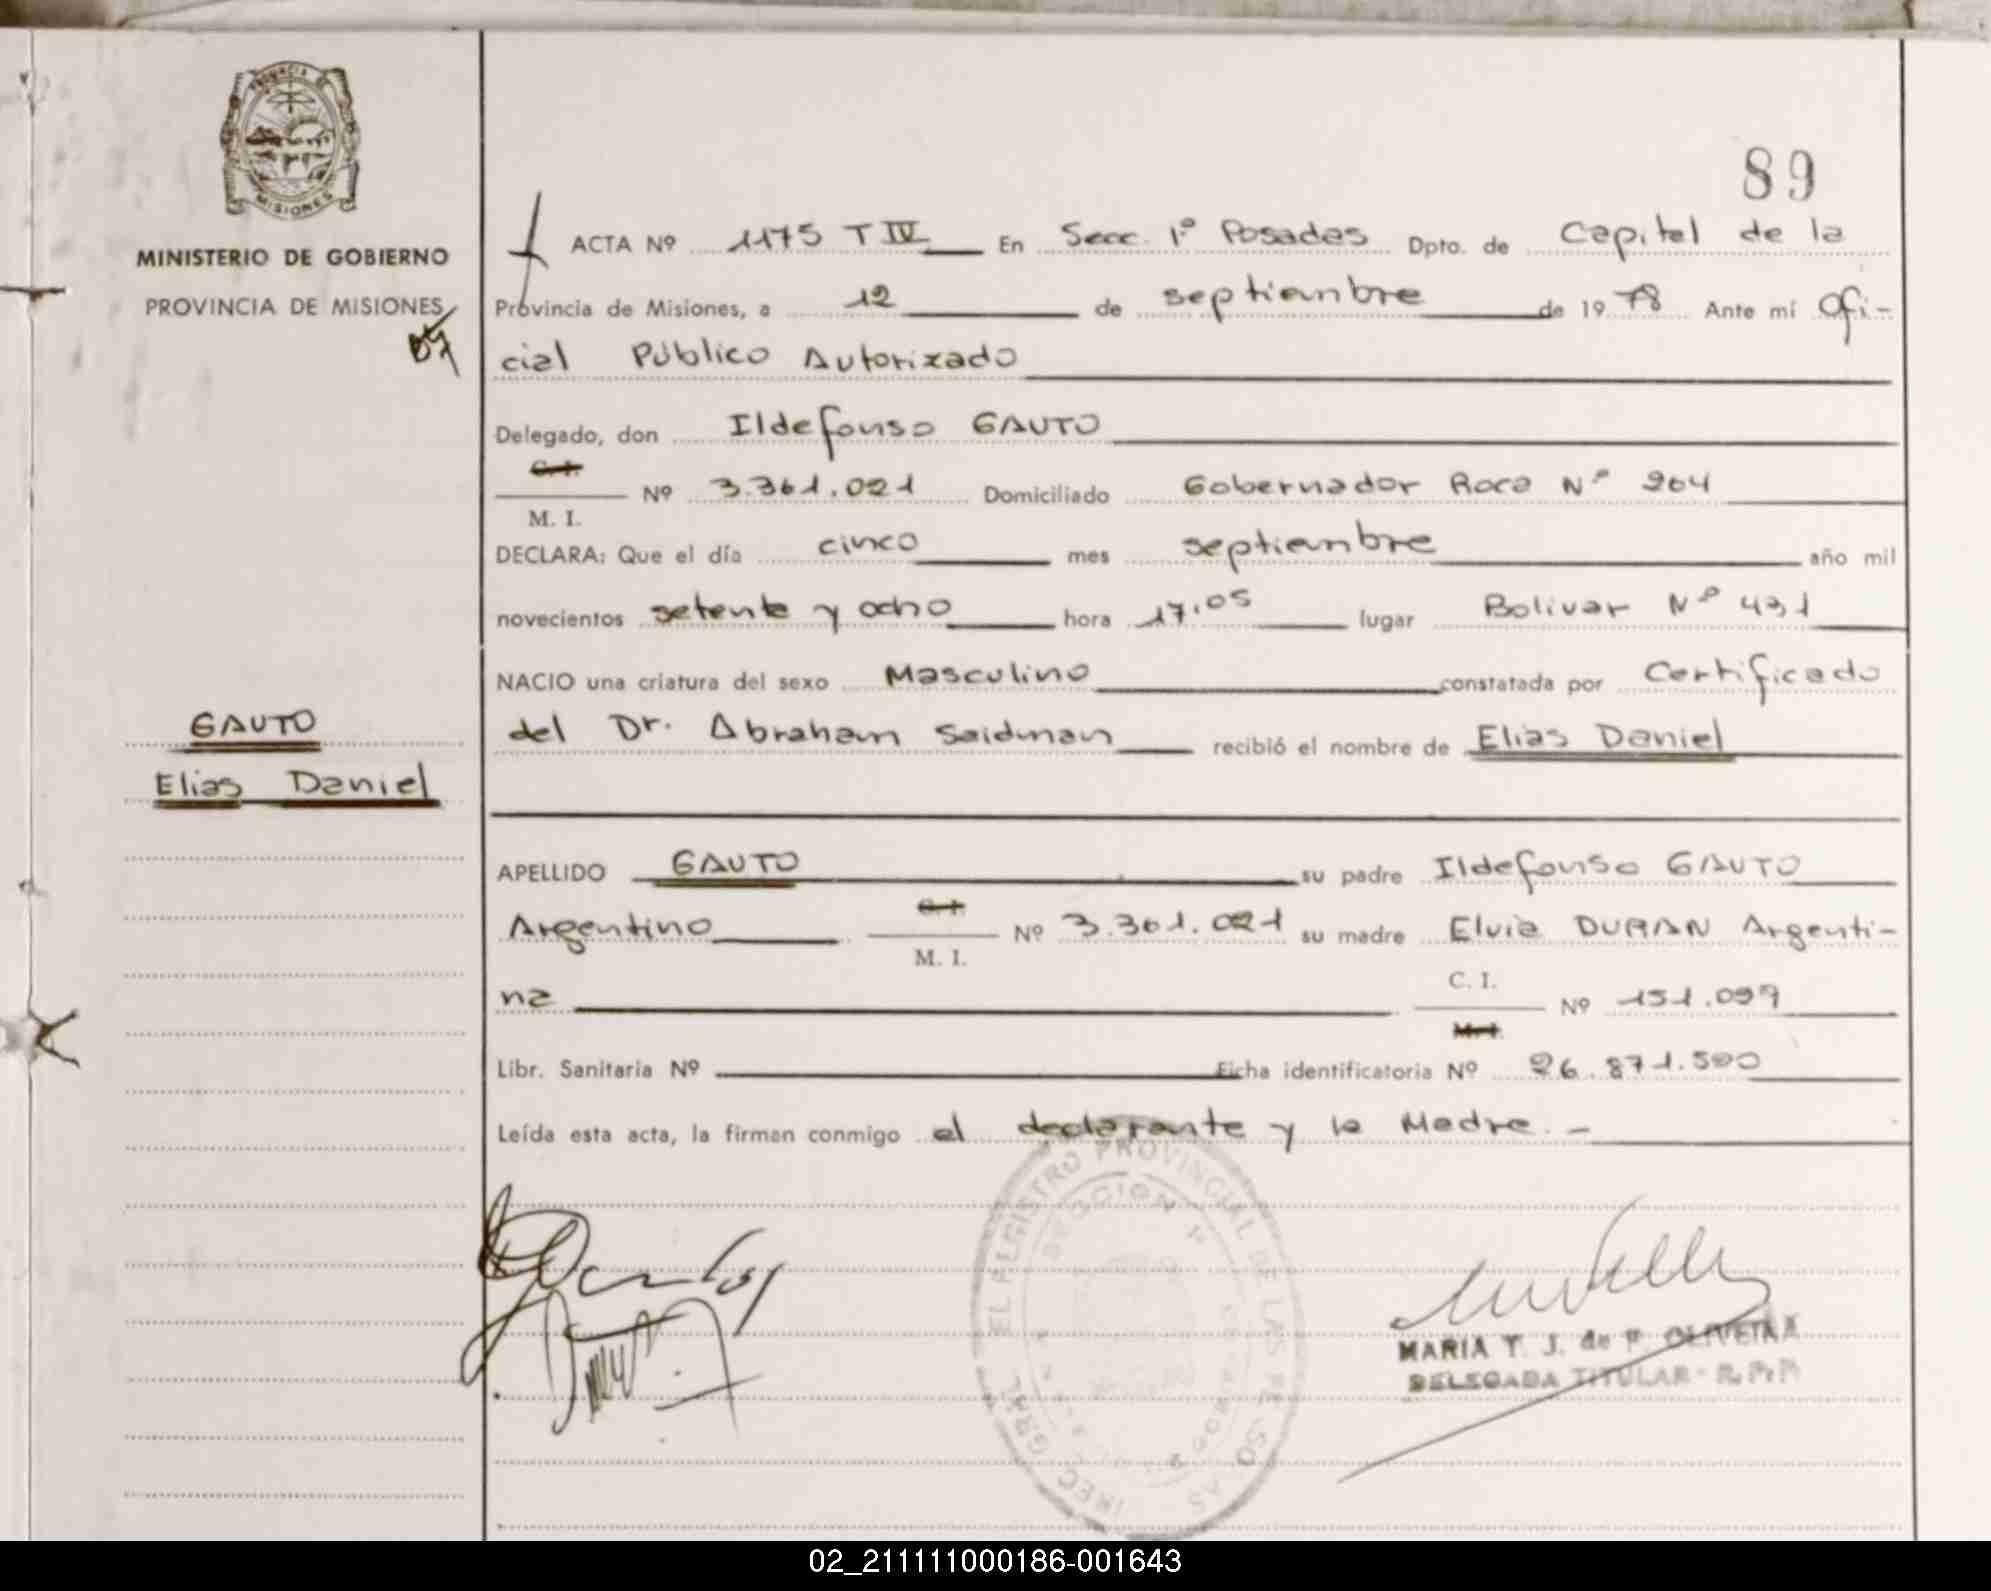 PROVINCIA DE
MISIONES
MINISTERIO DE GOBIERNO
PROVINCIA DE MISIONES
89
ACTA Nº 1175 T IV En Secc. 1º Posadas Dpto. de Capital de la
Provincia de Misiones, a 12 de septiembre de 1978 Ante mí Ofi-
cial Público Autorizado
Delegado, don Ildefonso GAUTO
C. I.
M. I. Nº 3.361.021 Domiciliado Gobernador Roca Nº 264
DECLARA: Que el día cinco mes septiembre año mil
novecientos setenta y ocho hora 17,05 lugar Bolivar Nº 431
NACIO una criatura del sexo Masculino constatada por Certificado
del Dr. Abraham Saidman recibió el nombre de Elias Daniel
GAUTO
Elias Daniel
APELLIDO GAUTO su padre Ildefonso GAUTO
Argentino C. I. M. I. Nº 3.361.021 su madre Elvia DURAN Argenti-
na C. I. M. I. Nº 151.097
Libr. Sanitaria Nº Ficha identificatoria Nº 26.871.500
Leída esta acta, la firman conmigo el declarante y la Madre.-
EL REGISTRO PROVINCIAL DE LAS PERSONAS
SECCION 1ª
MARIA Y. J. de F. OLIVEIRA
DELEGADA TITULAR - R.P.P.
02_211111000186-001643